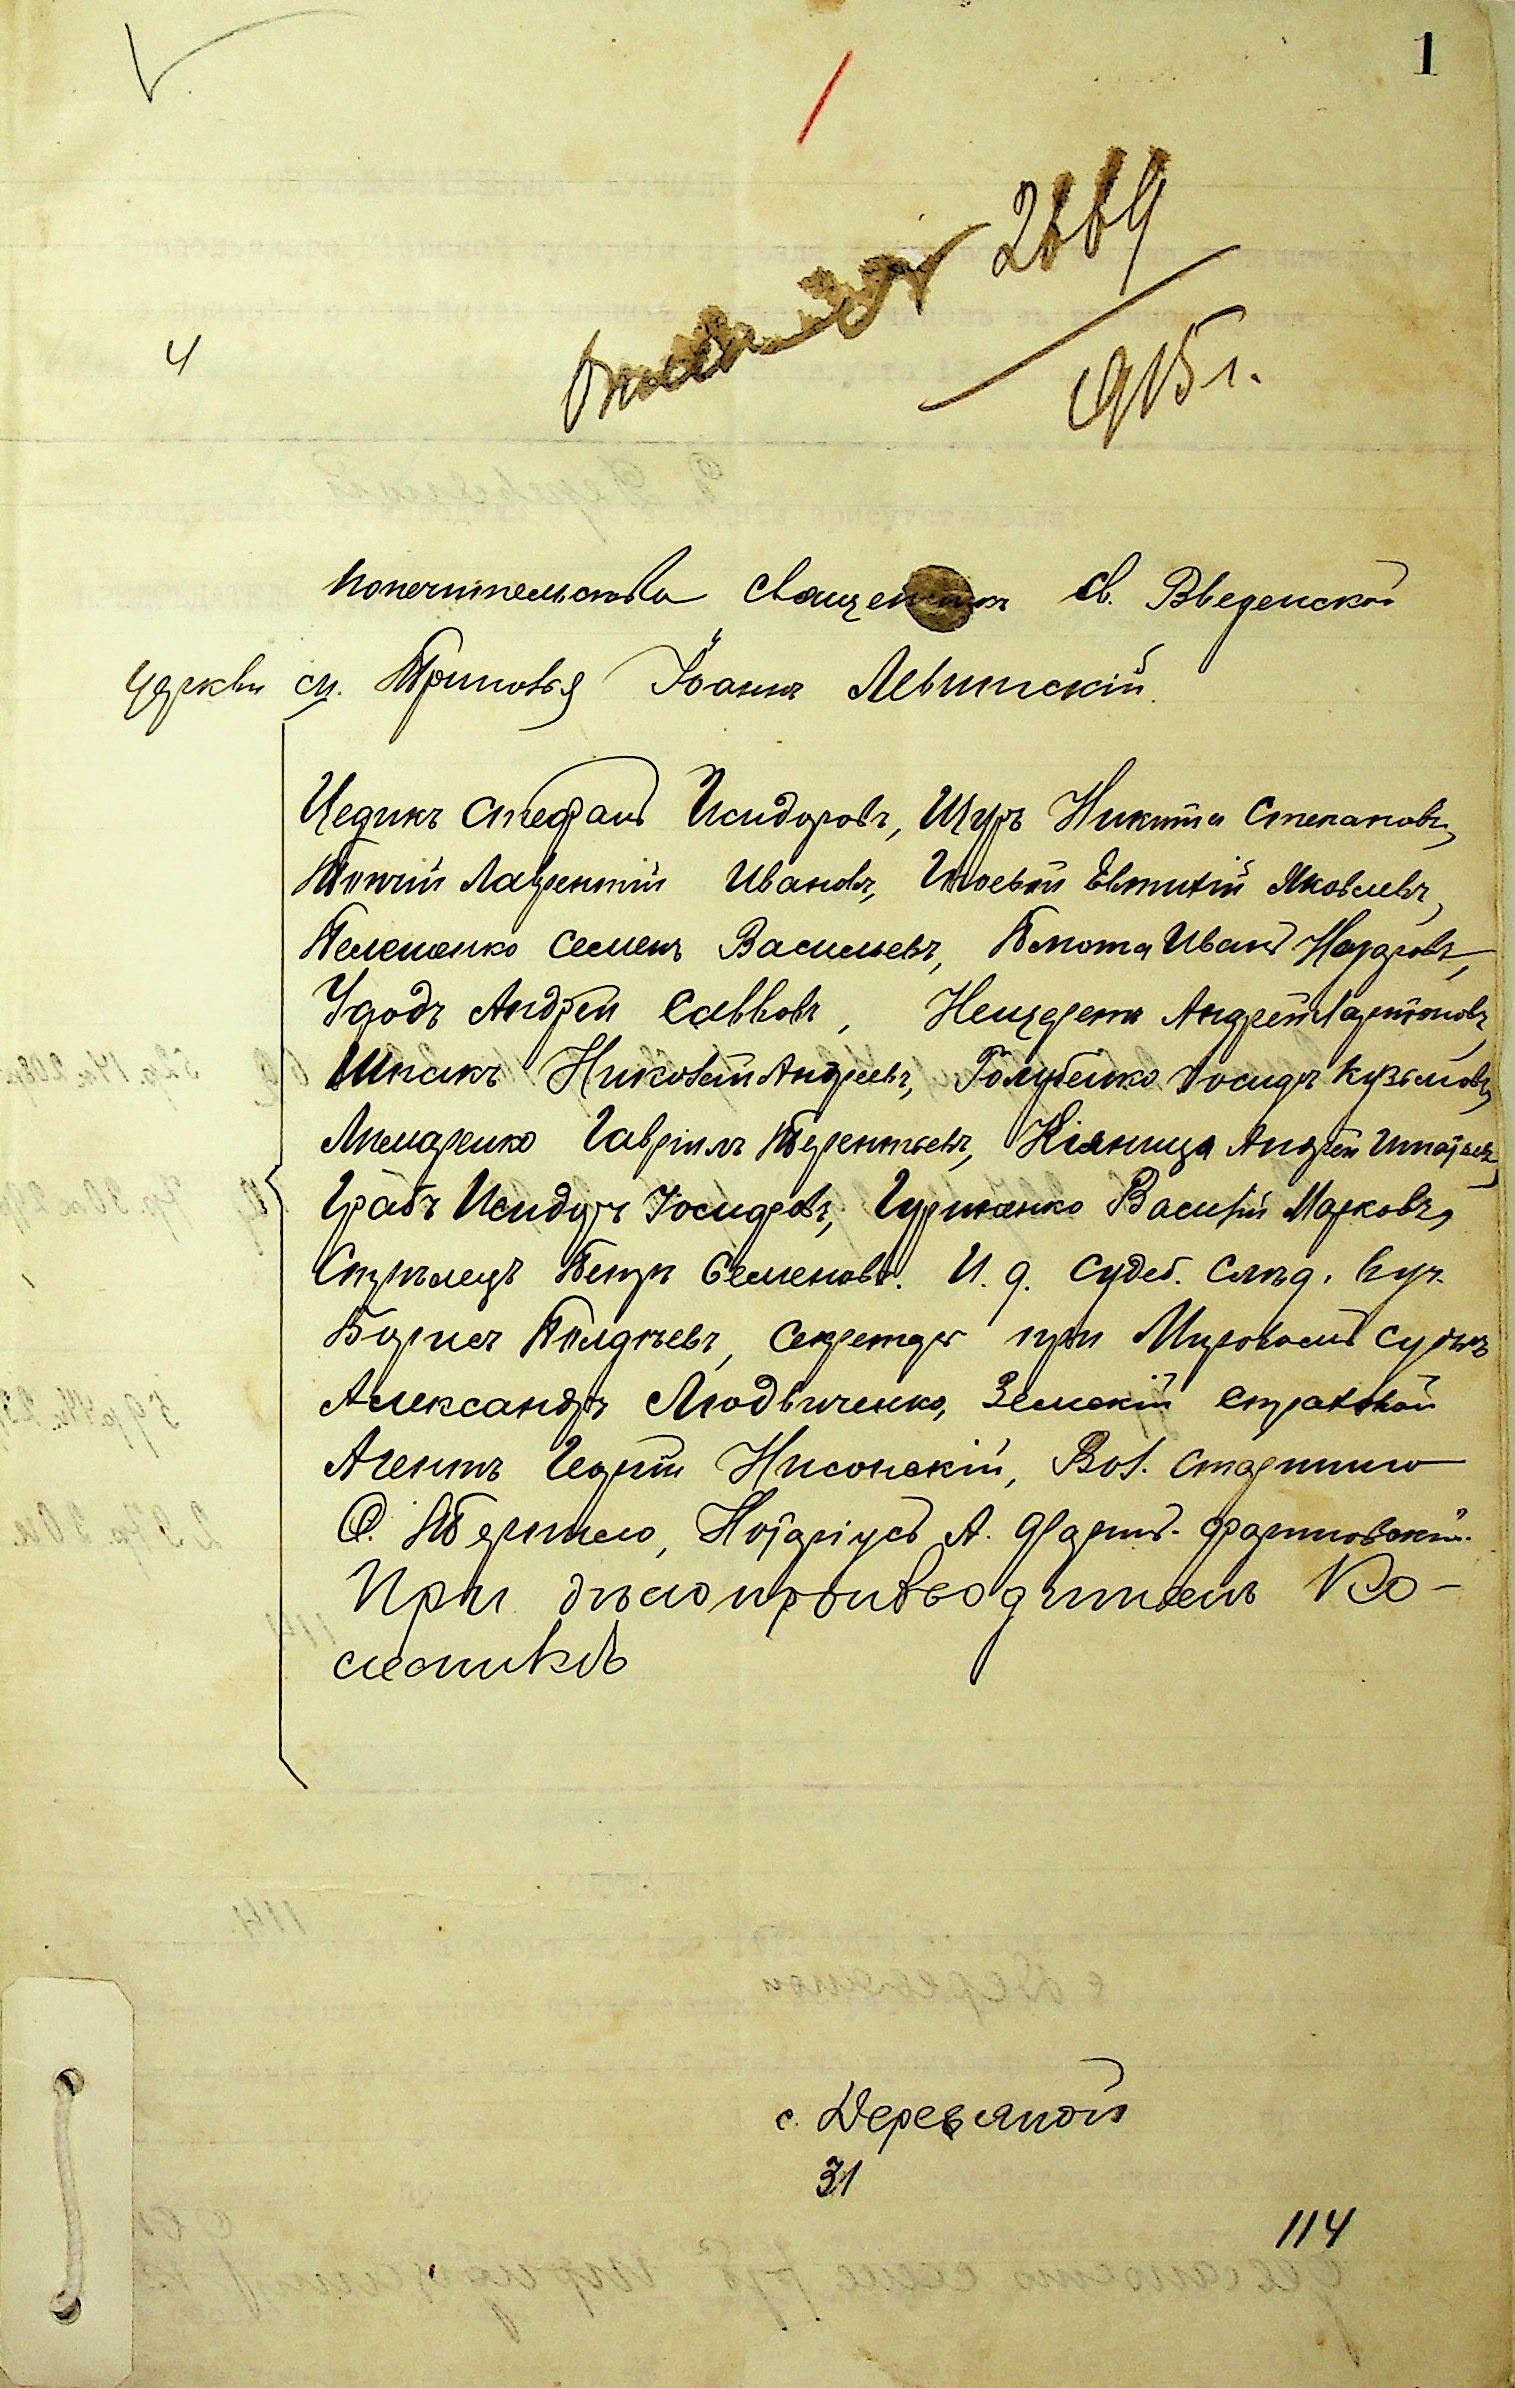 1
2669
1915 г.
4
попечительства Священникъ Св. Введенской
церкви м. Триполья Іоаннъ Левитскій.
Цедикъ Стефанъ Исидоровъ, Щуръ Никита Степановъ,
Лаврентій Ивановъ, Евтихій Яковлевъ,
Семенъ Васильевъ, Иванъ
Удодъ Андрей Савовъ, Нещеретъ Андрей Ларіоновъ,
Шпакъ Николай Андреевъ, Голубенко Іосифъ Кузьмовъ,
Гавріилъ Терентьевъ, Кіяница Андрей Игнатьевъ,
Грабъ Исидоръ Іосифовъ, Василій Марковъ,
Стрѣлецъ Петръ Семеновъ. И. д. Судеб. Слѣд. 6 уч.
Борисъ, Секретарь при Мировомъ Судьѣ
Александръ Людвиченко, Земскій страховой
Агентъ Георгій Нисонскій, Вол. Старшина
Нотаріусъ А.
При дѣлопроизводителѣ Ко-
лесников
с. Деревяной
31
114